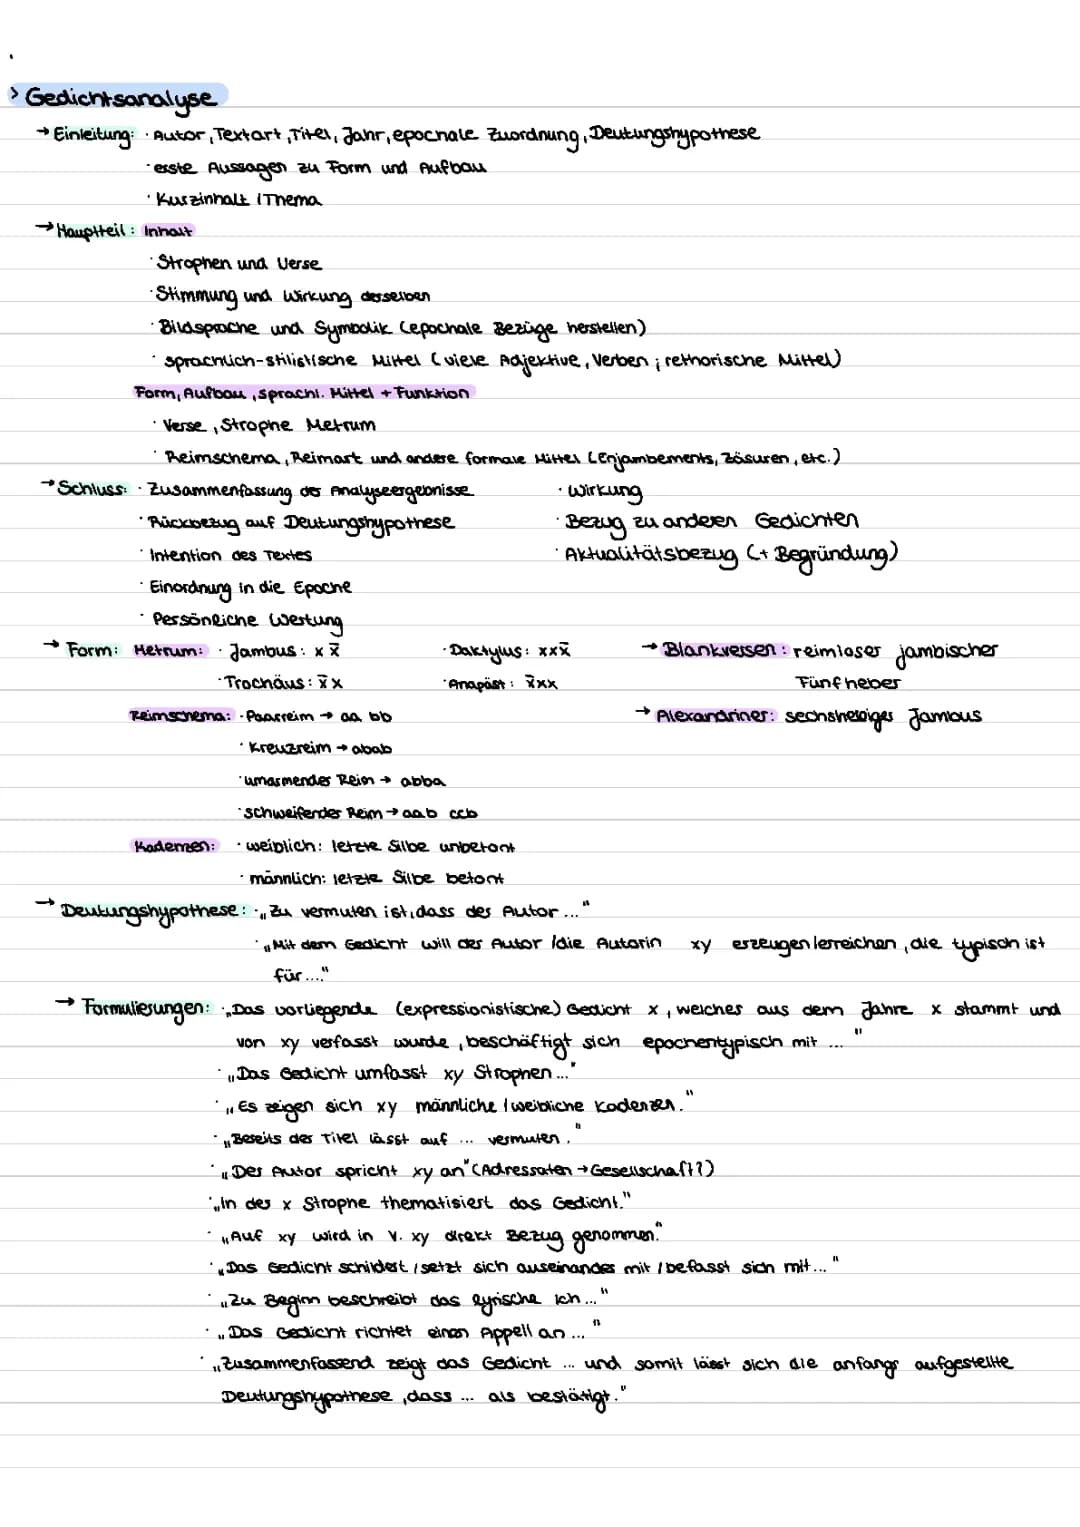 > Gedichtsanalyse
→ Einleitung: · Autor, Textart, Titel, Jahr, epochale Zuordnung, Deutungshypothese
· erste Aussagen zu Form und Aufbau
· Kurzinhalt / Thema
→ Hauptteil: Inhalt
· Strophen und Verse
· Stimmung und Wirkung derselben
· Bildsprache und Symbolik (epochale Bezüge herstellen)
· sprachlich-stilistische Mittel (viele Adjektive, Verben; rethorische Mittel)
Form, Aufbau, sprachl. Mittel + Funktion
· Verse, Strophe Metrum
· Reimschema, Reimart und andere formale Mittel (Enjambements, Zäsuren, etc.)
→ Schluss: · Zusammenfassung der Analyseergebnisse · Wirkung
· Rückbezug auf Deutungshypothese · Bezug zu anderen Gedichten
· Intention des Textes · Aktualitätsbezug (+ Begründung)
· Einordnung in die Epoche
· Persönliche Wertung
→ Form: Metrum: · Jambus: x x̄ · Daktylus: xxx̄ → Blankversen: reimloser jambischer
· Trochäus: x̄ x · Anapäst: x̄xx Fünfheber
Reimschema: · Paarreim → aa bb → Alexandriner: sechshebiger Jambus
· Kreuzreim → abab
· umarmender Reim → abba
· schweifender Reim → aab ccb
Kadenzen: · weiblich: letzte Silbe unbetont
· männlich: letzte Silbe betont
→ Deutungshypothese: · „Zu vermuten ist, dass der Autor ..."
· „Mit dem Gedicht will der Autor / die Autorin xy erzeugen/erreichen, die typisch ist
für ...."
→ Formulierungen: · „Das vorliegende (expressionistische) Gedicht x, welches aus dem Jahre x stammt und
von xy verfasst wurde, beschäftigt sich epochentypisch mit ..."
· „Das Gedicht umfasst xy Strophen ..."
· „Es zeigen sich xy männliche / weibliche Kadenzen."
· „Bereits der Titel lässt auf ... vermuten."
· „Der Autor spricht xy an" (Adressaten → Gesellschaft??)
· „In der x Strophe thematisiert das Gedicht."
· „Auf xy wird in V. xy direkt Bezug genommen."
· „Das Gedicht schildert / setzt sich auseinander mit / befasst sich mit ..."
· „Zu Beginn beschreibt das lyrische Ich ..."
· „Das Gedicht richtet einen Appell an ..."
· „Zusammenfassend zeigt das Gedicht ... und somit lässt sich die anfangs aufgestellte
Deutungshypothese, dass ... als bestätigt."